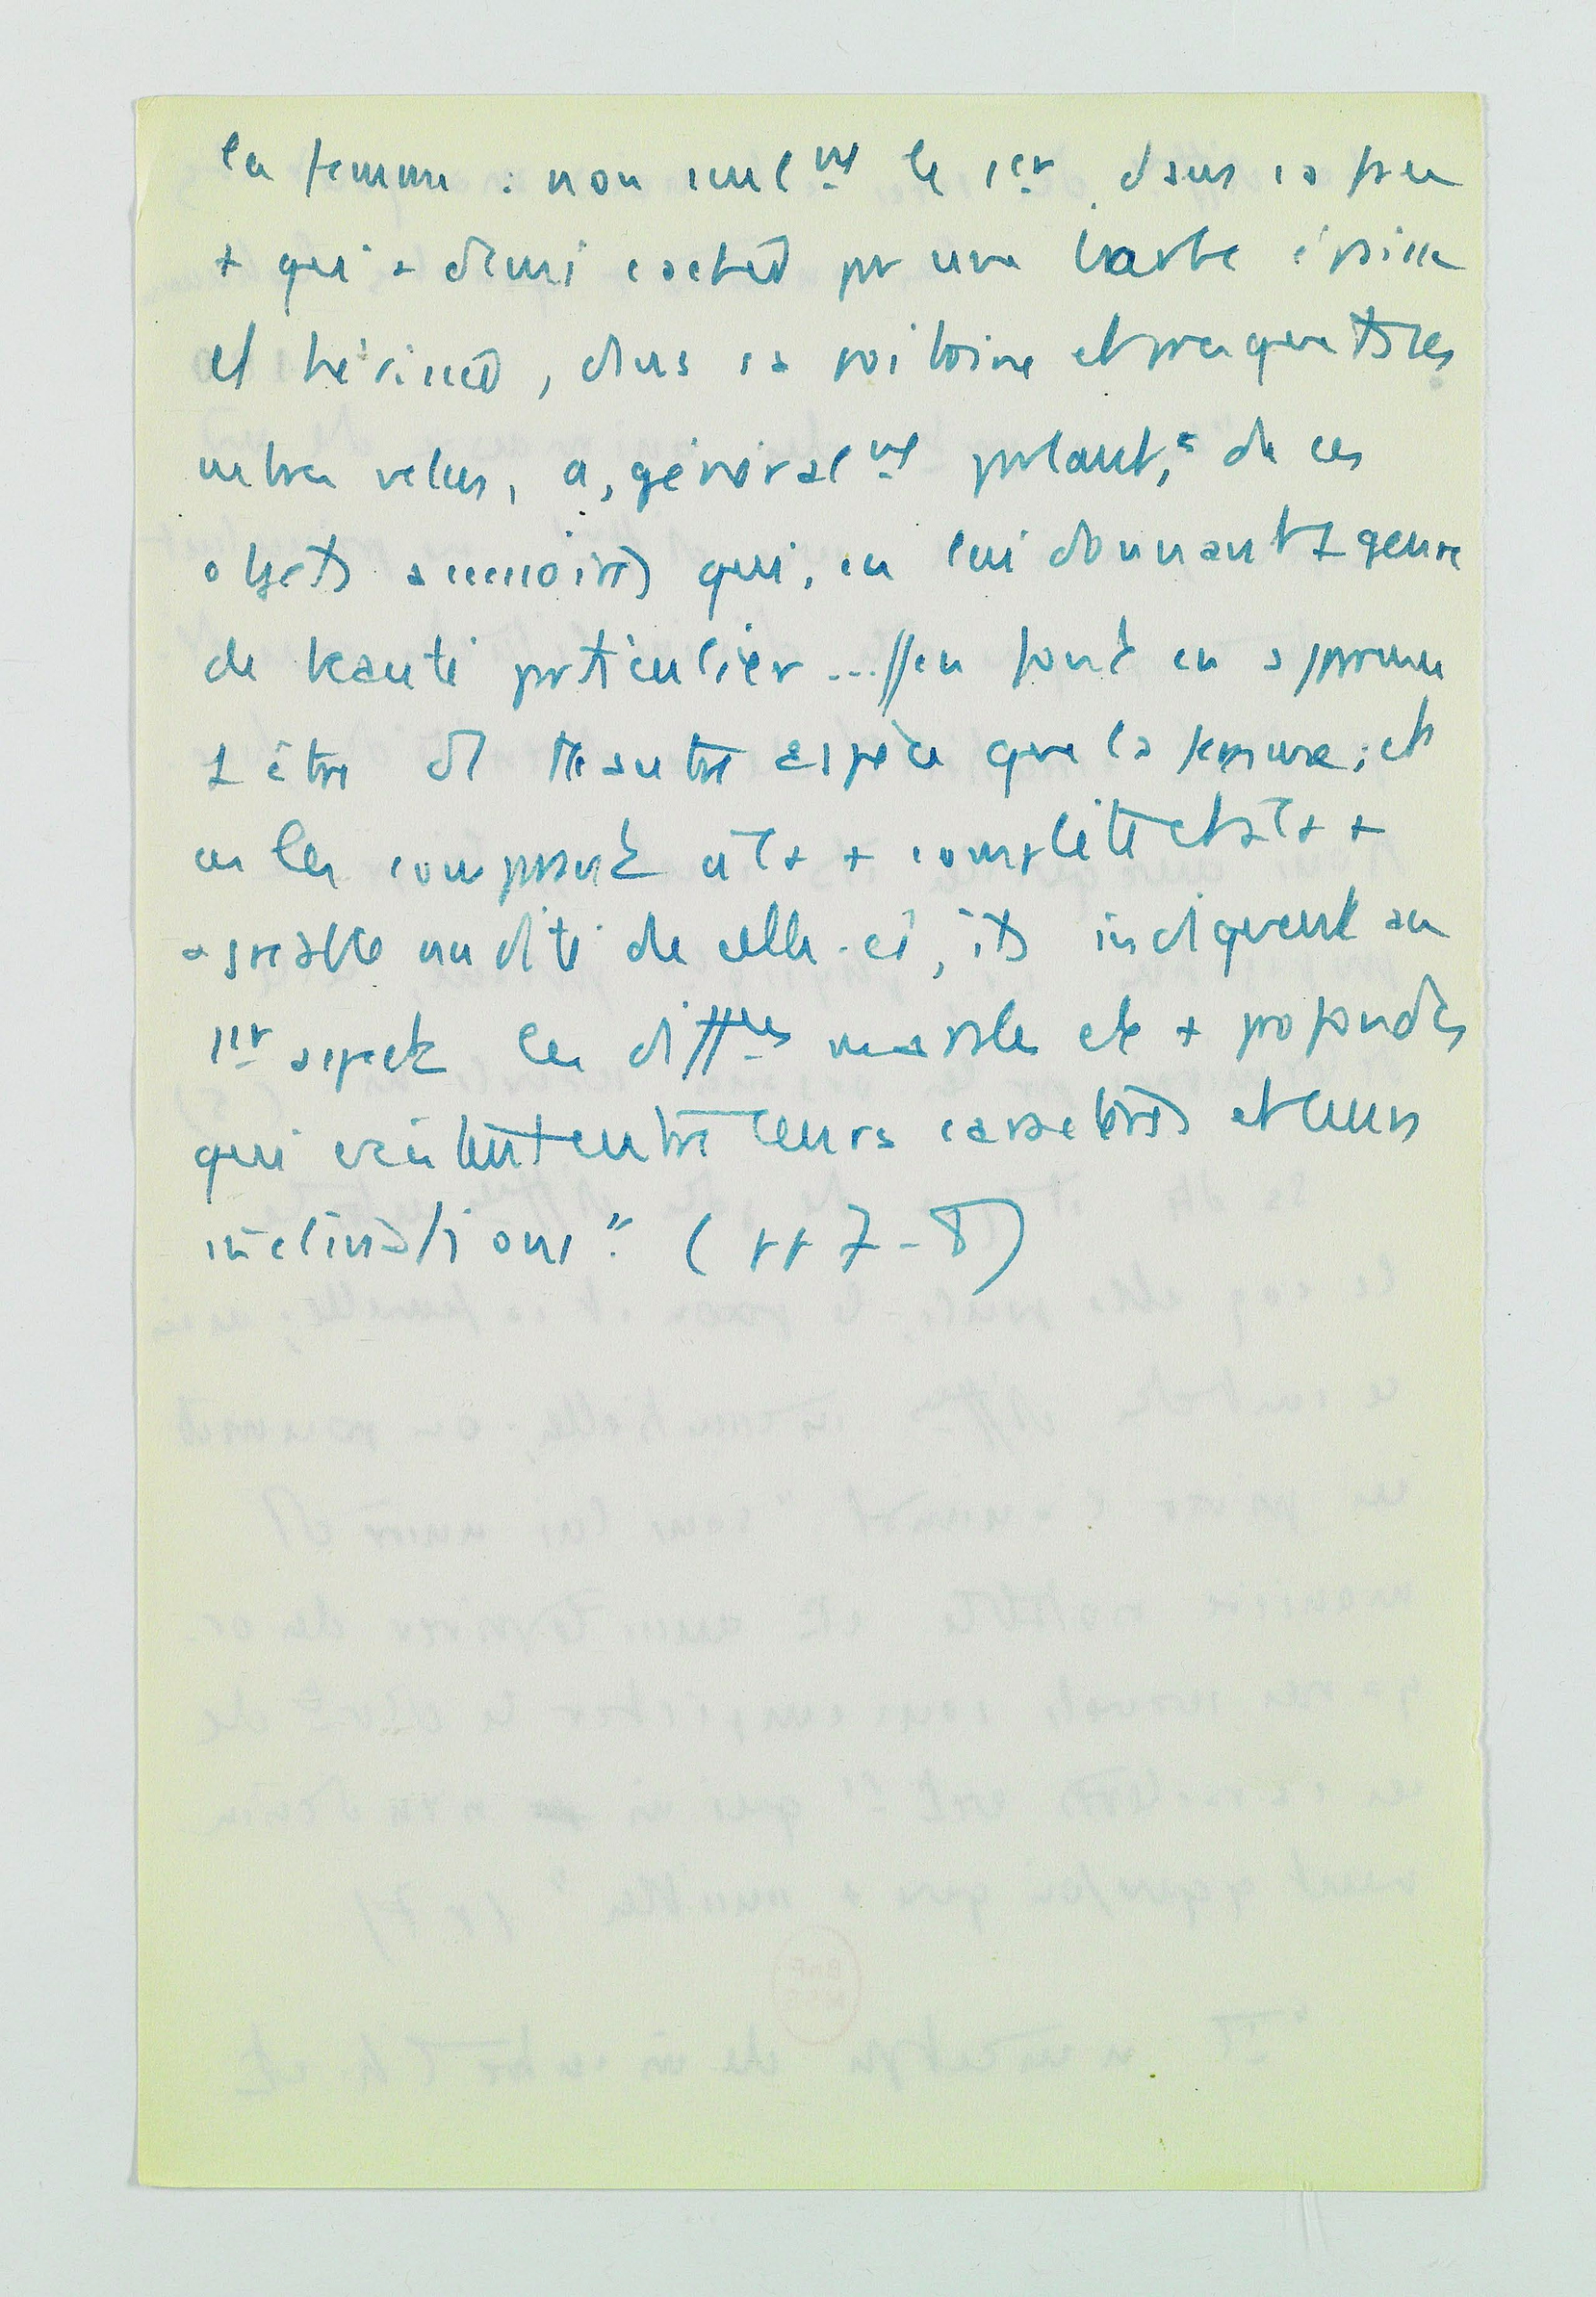 la femme : non seulmt le 1er, dans sa face
+ qu'à demi cachée par une barbe épaisse
et hérissée, dans sa poitrine et presque ts ses
velus, a, généralmt parlant, de ces
objets accessoires qui, en lui donnant 1 genre
de beauté particulier ... // en font en apparence
1 être d' 1 autre espèce que la femme ; et
en les comparant à la + complète et à la +
agréable nudité de celle-ci, ils indiquent au
1er aspect les différces morales et + profondes
qui existent entre leurs caractères et leurs
inclinations". (pp 7-8)